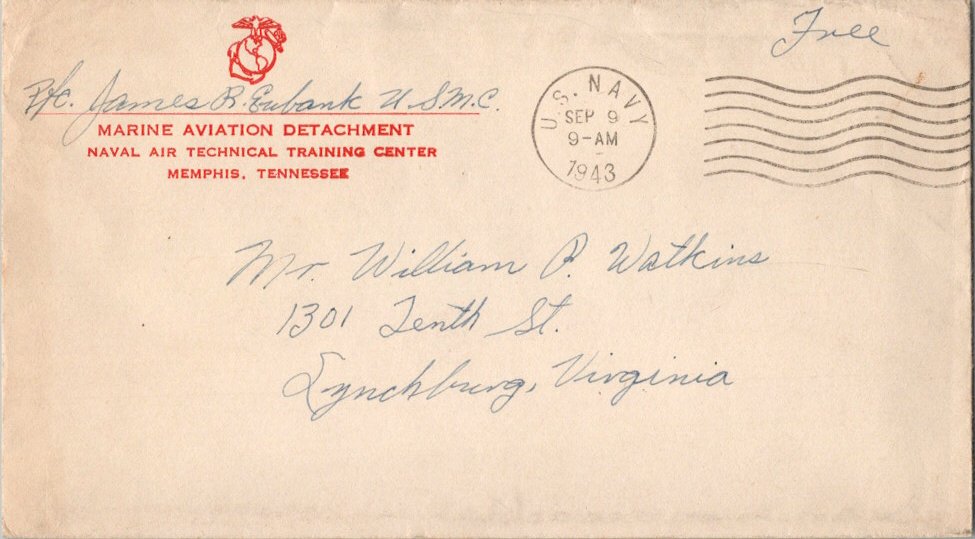 Free
Pfc. James R. Eubank U.S.M.C.
MARINE AVIATION DETACHMENT
NAVAL AIR TECHNICAL TRAINING CENTER
MEMPHIS, TENNESSEE
U.S. NAVY
SEP 9
9-AM
1943
Mr. William P. Watkins
1301 Tenth St.
Lynchburg, Virginia